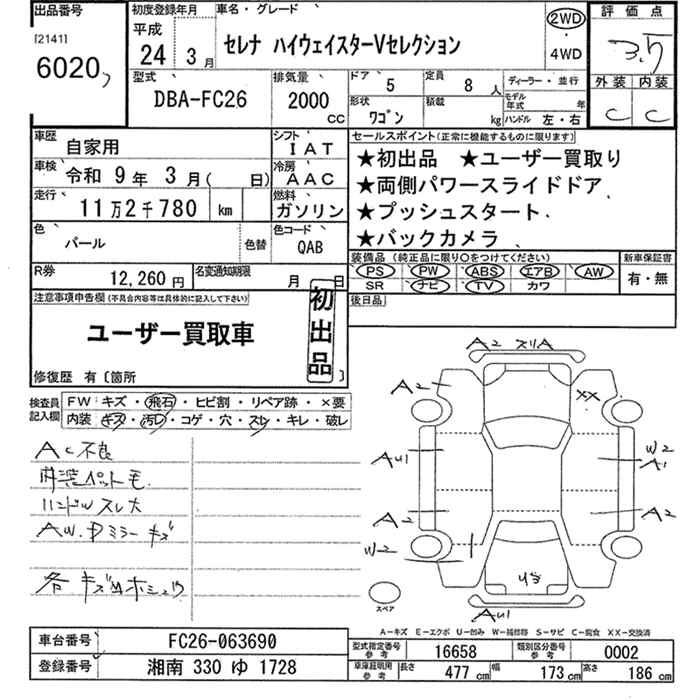 出品番号 初度登録年月 車名・グレード 評価点
[2141] 平成 2WD
6020 24年 3月 セレナ ハイウェイスターVセレクション 4WD 3.5
型式 排気量 ドア 5 定員 8人 ディーラー・並行 外装 内装
DBA-FC26 2000cc 形状 ワゴン 積載 kg モデル年式 年 ハンドル 左・右 C C
車歴 自家用 シフト IAT セールスポイント(正常に機能するものに限ります)
車検 令和 9年 3月( 日) 冷房 AAC ★初出品 ★ユーザー買取り
走行 11万2千780 km 燃料 ガソリン ★両側パワースライドドア
★プッシュスタート
色 パール 色替 色コード QAB ★バックカメラ
装備品 (純正品に限り○をつけてください) 新車保証書
R券 12,260円 名変通知期限 月 日 PS PW ABS エアB AW 有・無
SR ナビ TV カワ
注意事項申告欄(不具合内容等は具体的に記入して下さい) 初出品 後日品
ユーザー買取車
修復歴 有〔箇所 〕
検査員記入欄 FW キズ・飛石・ヒビ割・リペア跡・×要
内装 キズ・汚レ・コゲ・穴・スレ・キレ・破レ
AC不良
内装ペット毛
ハンドルスレ大
AW.Dミラーキズ
各キズ凹ホシュウ
A2 スリA
A2 XX
AU1 W2 A1
A2 A2
W2
U3
AU1
スペア
A-キズ E-エクボ U-凹み W-補修跡 S-サビ C-腐食 XX-交換済
車台番号 FC26-063690 型式指定番号 参考 16658 類別区分番号 参考 0002
登録番号 湘南 330 ゆ 1728 車庫証明用 参考 長さ 477cm 幅 173cm 高さ 186cm